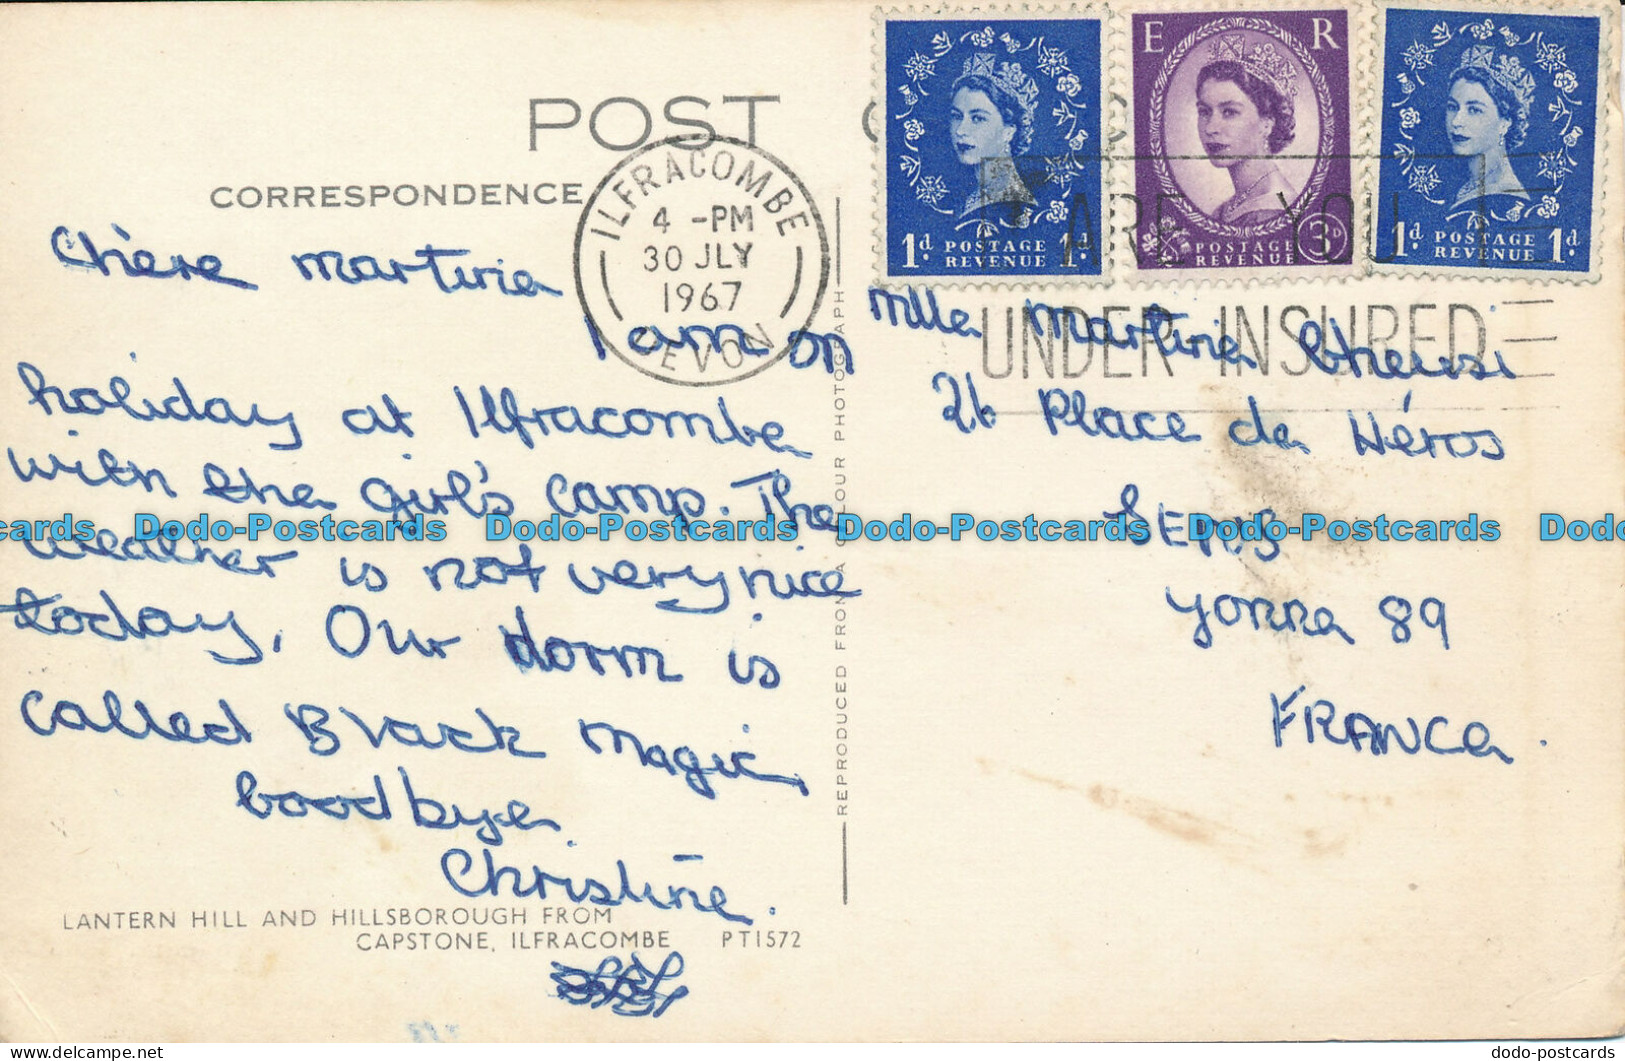 POST
CORRESPONDENCE
ILFRACOMBE
4 -PM
30 JLY
1967
DEVON
1d POSTAGE REVENUE 1d
E R
POSTAGE REVENUE 3D
1d POSTAGE REVENUE 1d
ARE YOU
UNDER-INSURED
Chère Martine
I am on
holiday at Ilfracombe
with the girl's camp. The
weather is not very nice
today. Our dorm is
called Black Magic,
Goodbye
Christine.
LANTERN HILL AND HILLSBOROUGH FROM
CAPSTONE, ILFRACOMBE PT1572
REPRODUCED FROM A COLOUR PHOTOGRAPH
Mlle Martine
Place de Héros
SENS
Yonne 89
FRANCE.
Dodo-Postcards Dodo-Postcards Dodo-Postcards Dodo-Postcards Dodo-Postcards
dodo-postcards.com